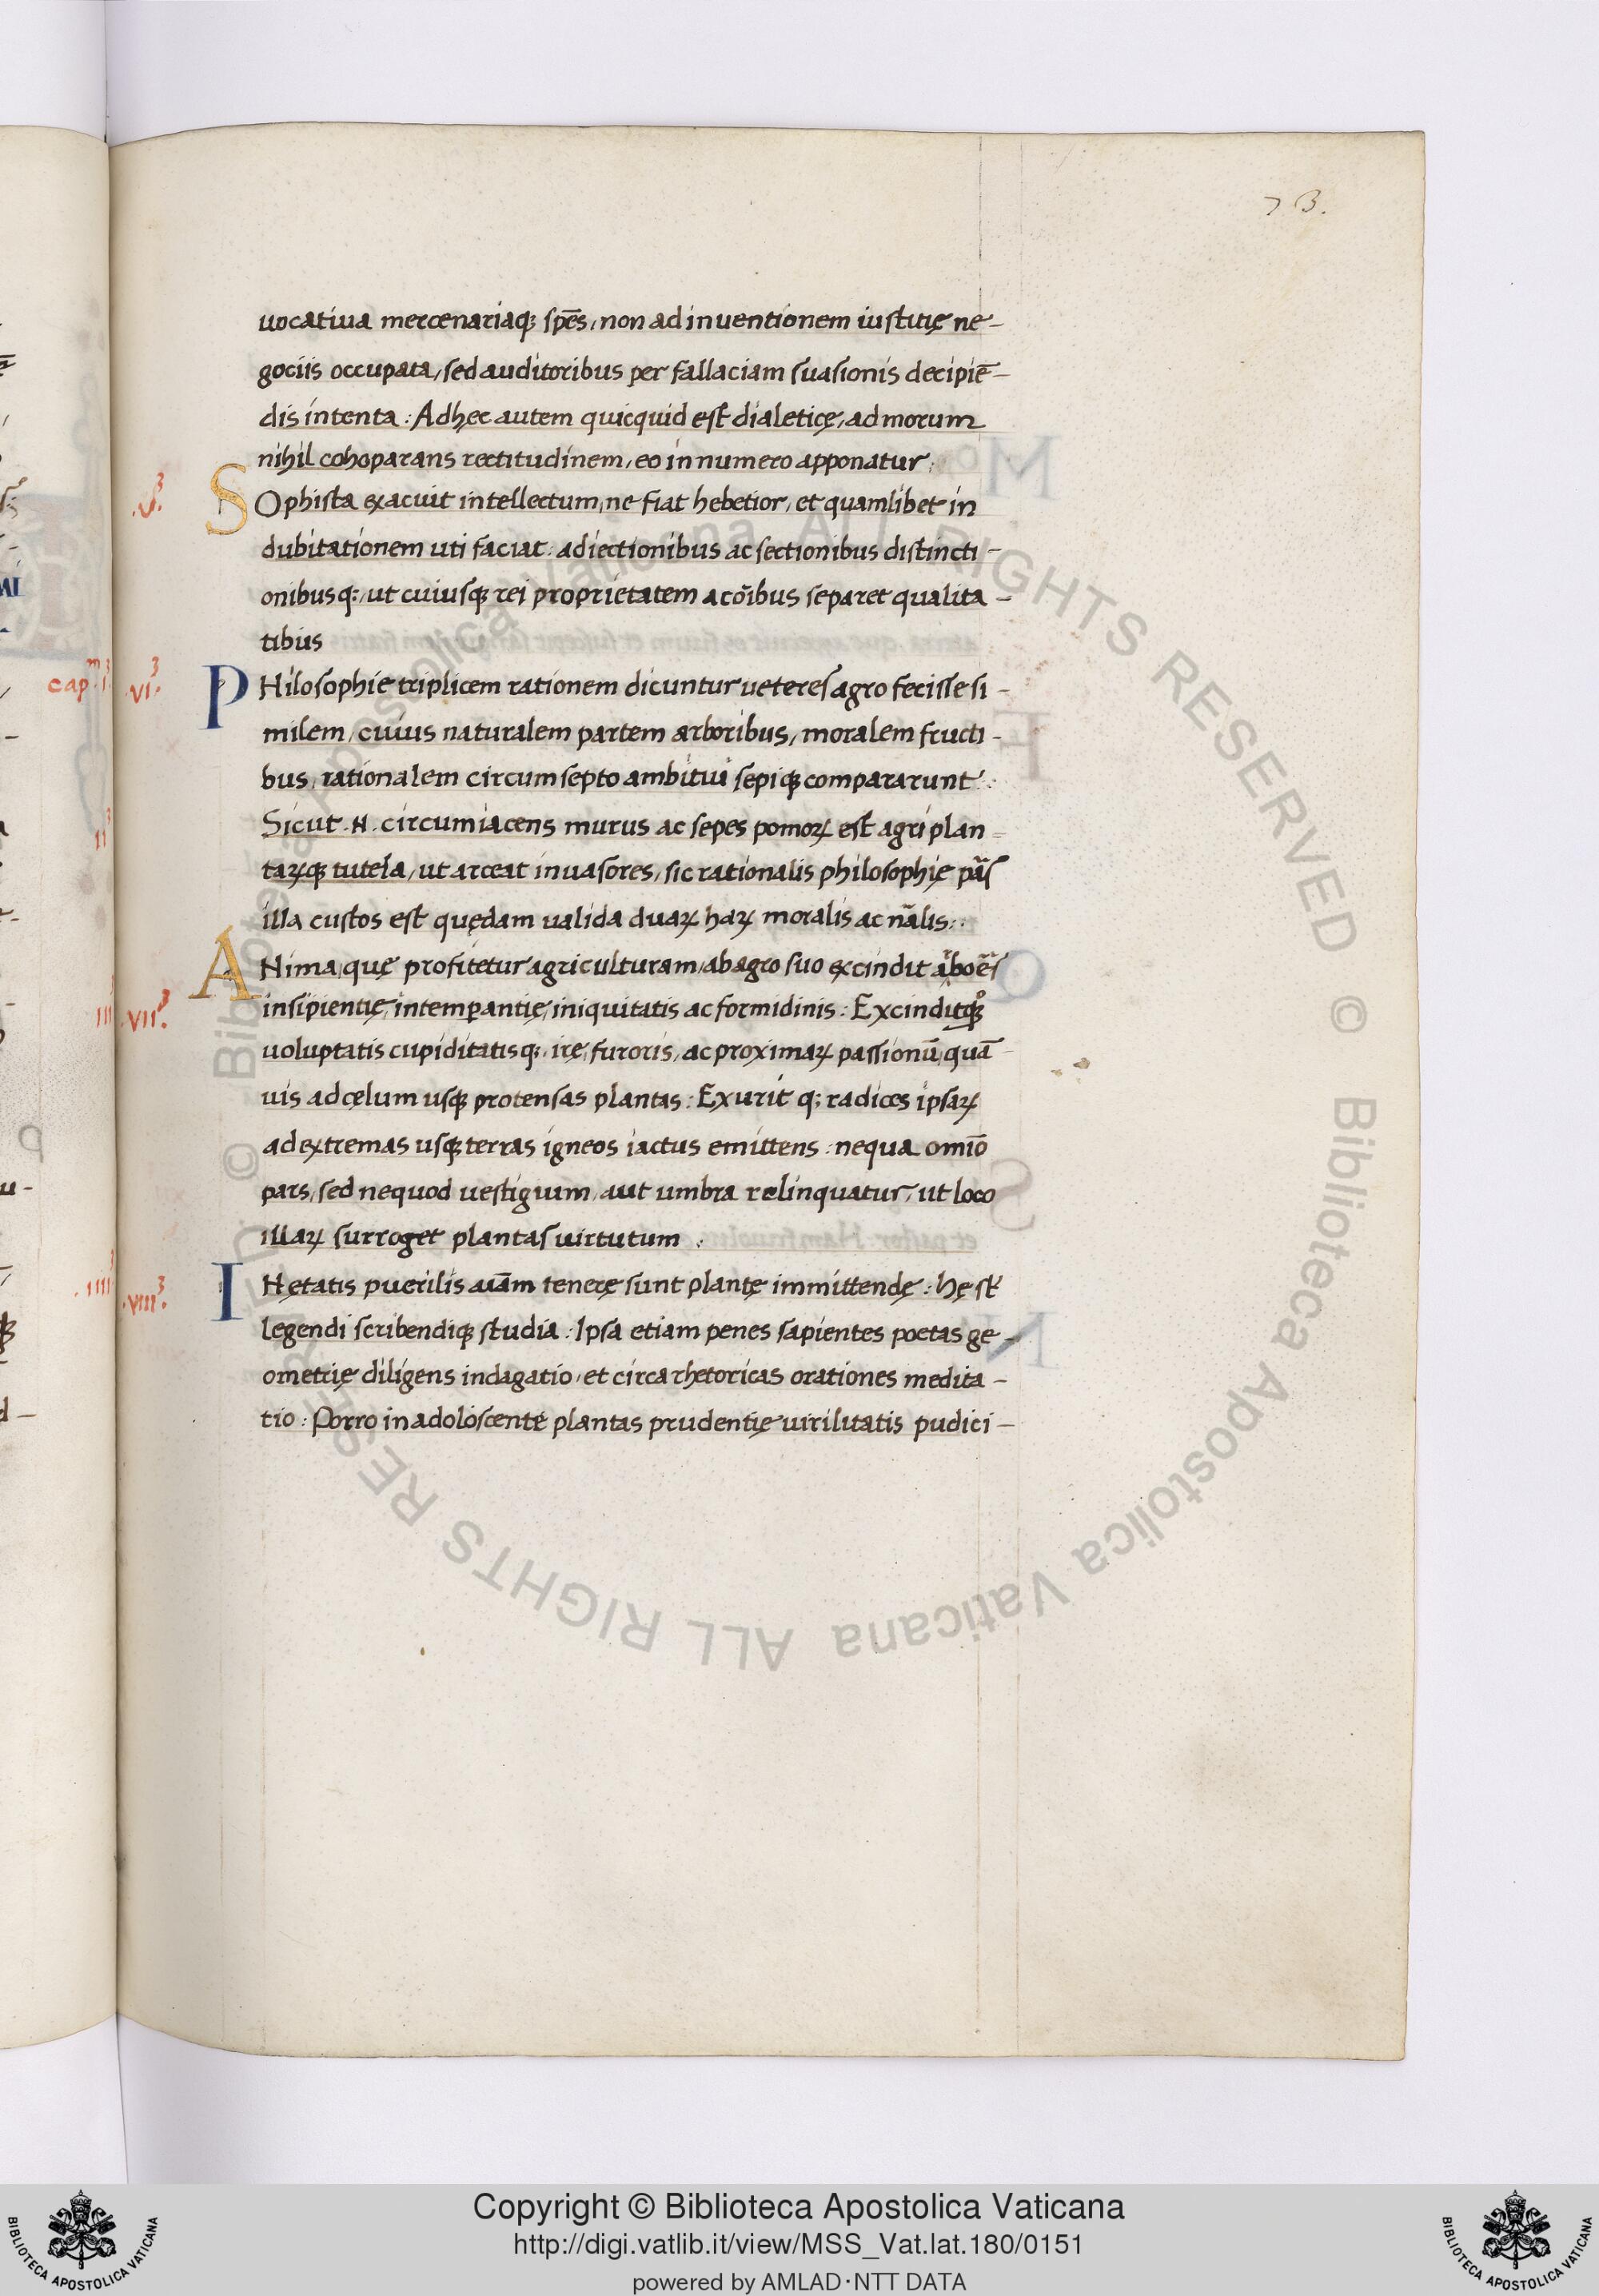 73.
uocatiua mercenariaqꝫ spēs, non ad inuentionem iustitię ne-
gociis occupata, sed auditoribus per fallaciam suasionis decipiē-
dis intenta: Adhec autem quicquid est dialeticę, ad morum
nihil cohoparans rectitudinem, eo in numero apponatur.
.V.³ SOphista exacuit intellectum, ne fiat hebetior, et quamlibet in
dubitationem uti faciat: adiectionibus ac sectionibus distincti-
onibusq:, ut cuiusqꝫ rei proprietatem a cōībus separet qualita-
tibus
.VI.³ PHilosophię triplicem rationem dicuntur ueteres agro fecisse si-
milem, cuius naturalem partem arboribus, moralem fructi-
bus, rationalem circumsepto ambitui sepiqꝫ compararunt:
Sicut .N. circumiacens murus ac sepes pomoꝝ est agri plan-
taꝝqꝫ tutela, ut arceat inuasores, sic rationalis philosophię pās
illa custos est quędam ualida duaꝝ haꝝ moralis ac nālis:.
ANima, quę profitetur agriculturam, ab agro suo excindit
.VII.³ insipientię, intemperantię, iniquitatis ac formidinis: Exciditqꝫ
uoluptatis cupiditatisq: irę, furoris, ac proximaꝝ passionū, quā-
uis ad cęlum usqꝫ protensas plantas: Exurit q; radices ipsaꝝ
ad extremas usqꝫ terras igneos iactus emittens: nequa omīo
pars, sed nequod uestigium, aut umbra relinquatur, ut loco
illaꝝ surroget plantas uirtutum:
.VIII.³ INętatis puerilis aīam tenerę sunt plantę immittendę: hę st̄
legendi scribendiqꝫ studia: Ipsa etiam penes sapientes poetas ge-
ometrię diligens indagatio, et circa rhetoricas orationes medita-
tio: Porro in adoloscente plantas prudentię uirilitatis pudici-
cap. I.
II
III
.IIII.
© Biblioteca Apostolica Vaticana ALL RIGHTS RESERVED © Biblioteca Apostolica Vaticana ALL RIGHTS RESERVED
Copyright © Biblioteca Apostolica Vaticana
http://digi.vatlib.it/view/MSS_Vat.lat.180/0151
powered by AMLAD·NTT DATA
BIBLIOTECA APOSTOLICA VATICANA
BIBLIOTECA APOSTOLICA VATICANA